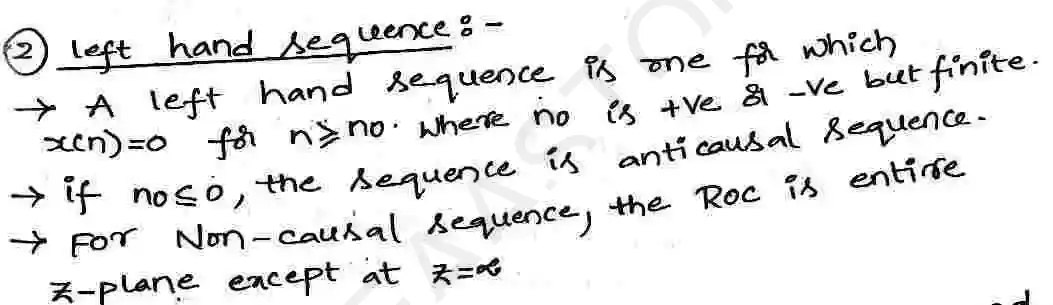 ② left hand sequence :-
→ A left hand sequence is one for which
x(n)=0 for n≥no. Where no is +ve or -ve but finite.
→ if no≤0, the sequence is anticausal sequence.
→ For Non-causal sequence, the ROC is entire
z-plane except at z=∞